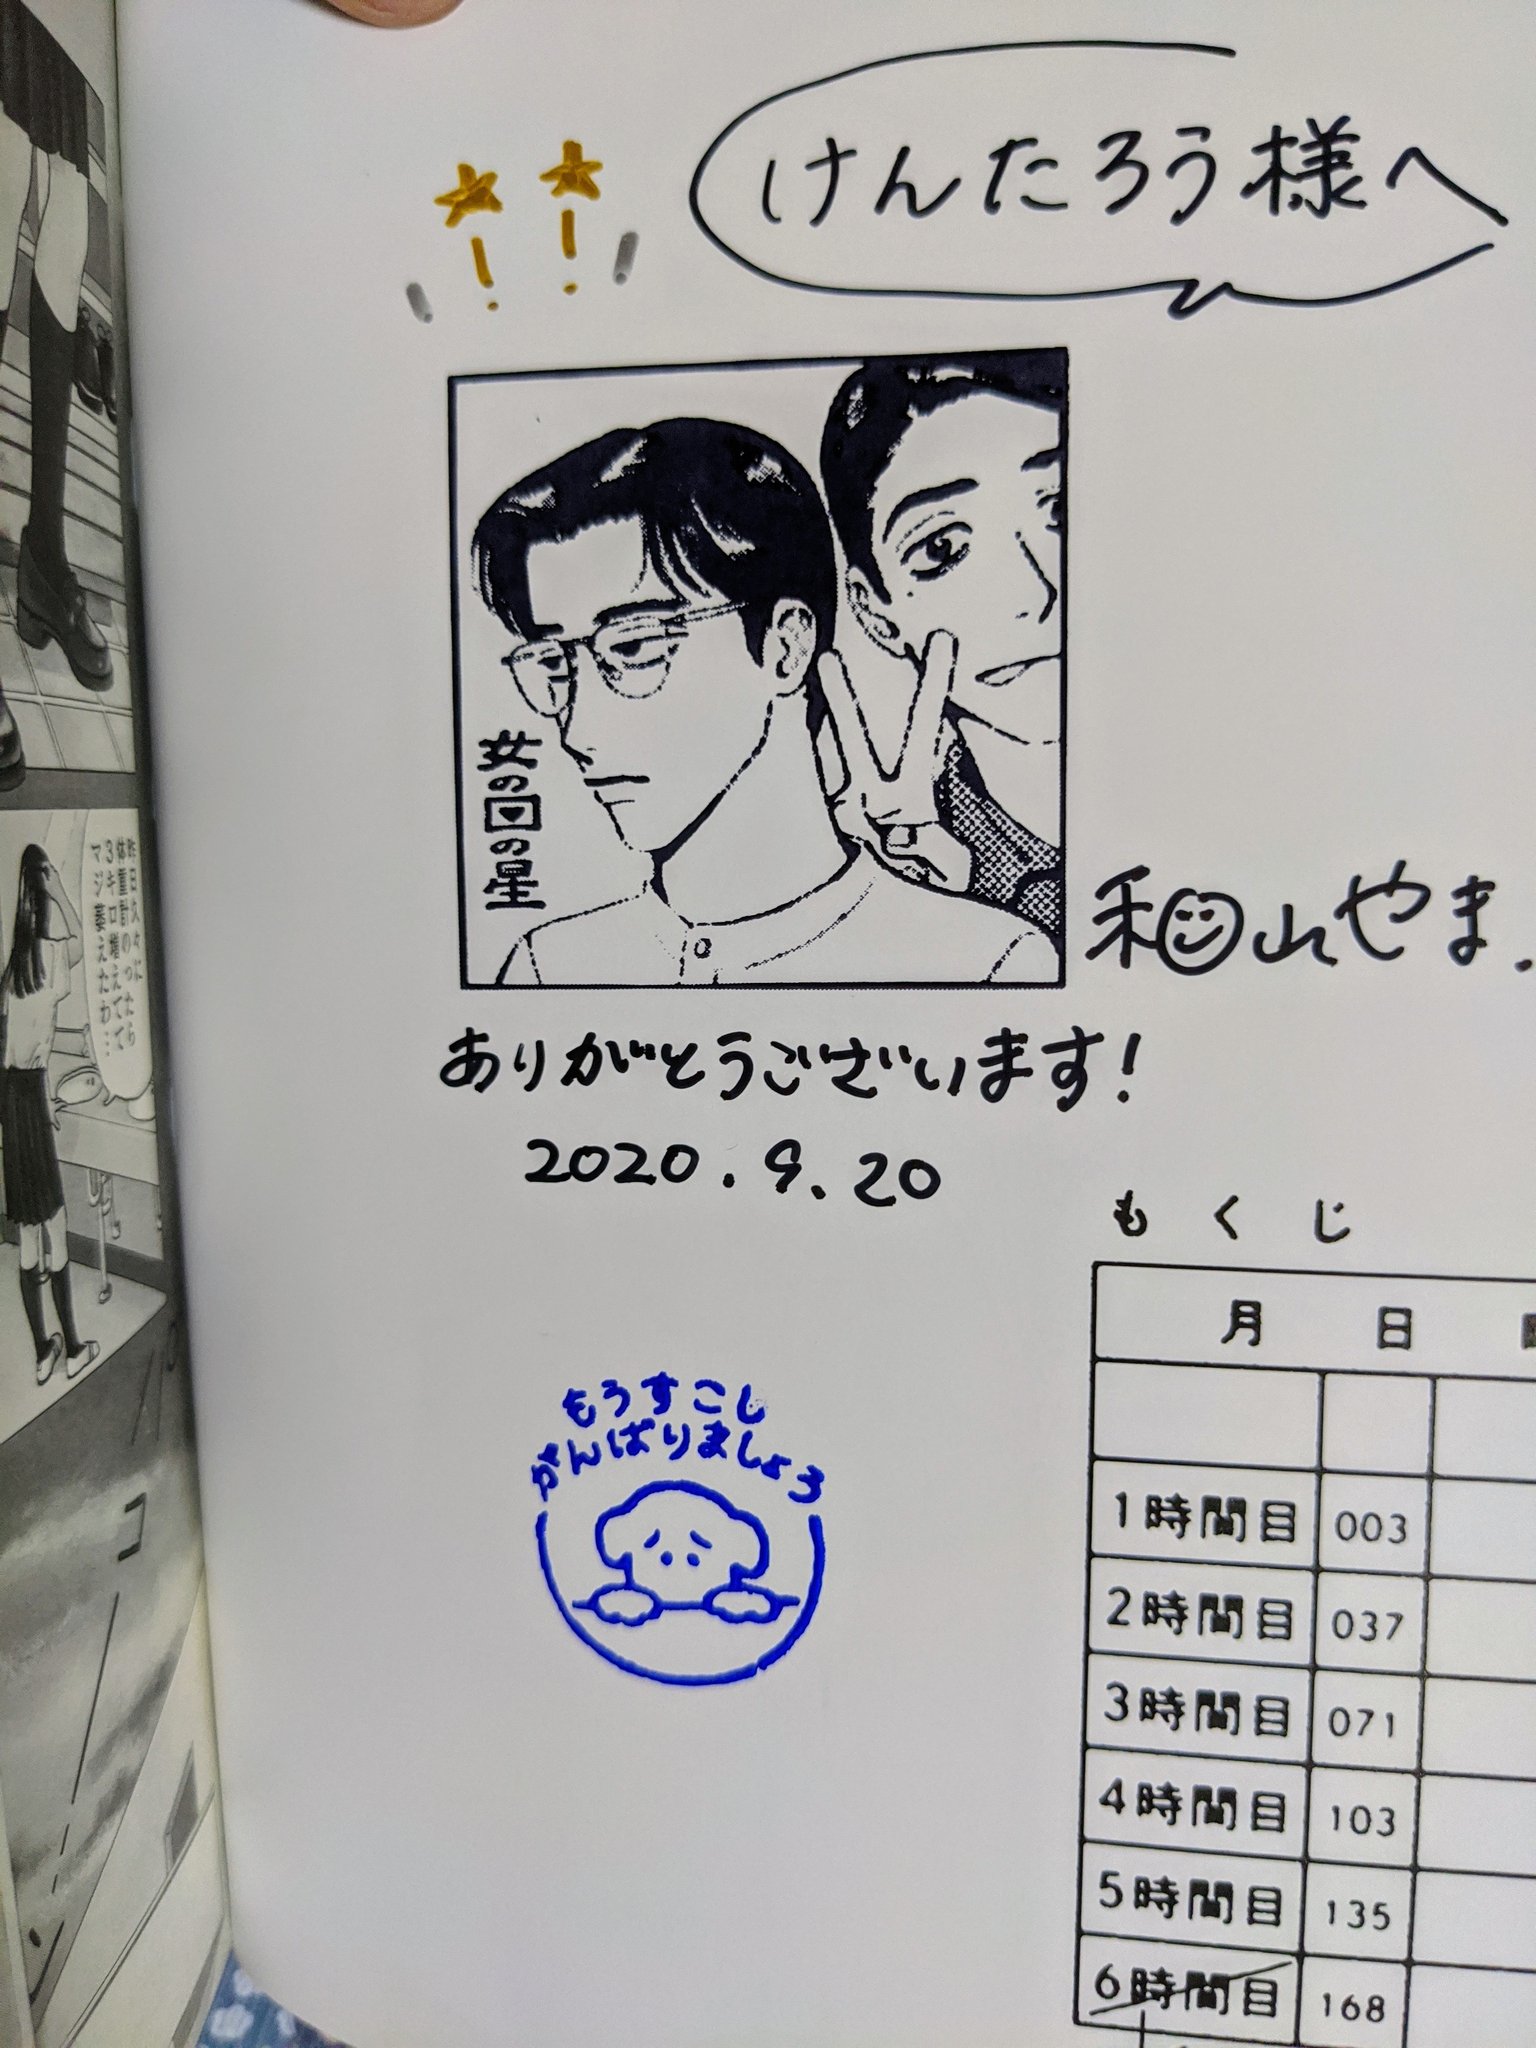 けんたろう様へ
女の園の星
和山やま.
ありがとうございます!
2020.9.20
もうすこし
がんばりましょう
もくじ
月 日
1時間目 003
2時間目 037
3時間目 071
4時間目 103
5時間目 135
6時間目 168
昨日久々に
体重計のったら
3キロ増えてて
マジ萎えたわ…
コ